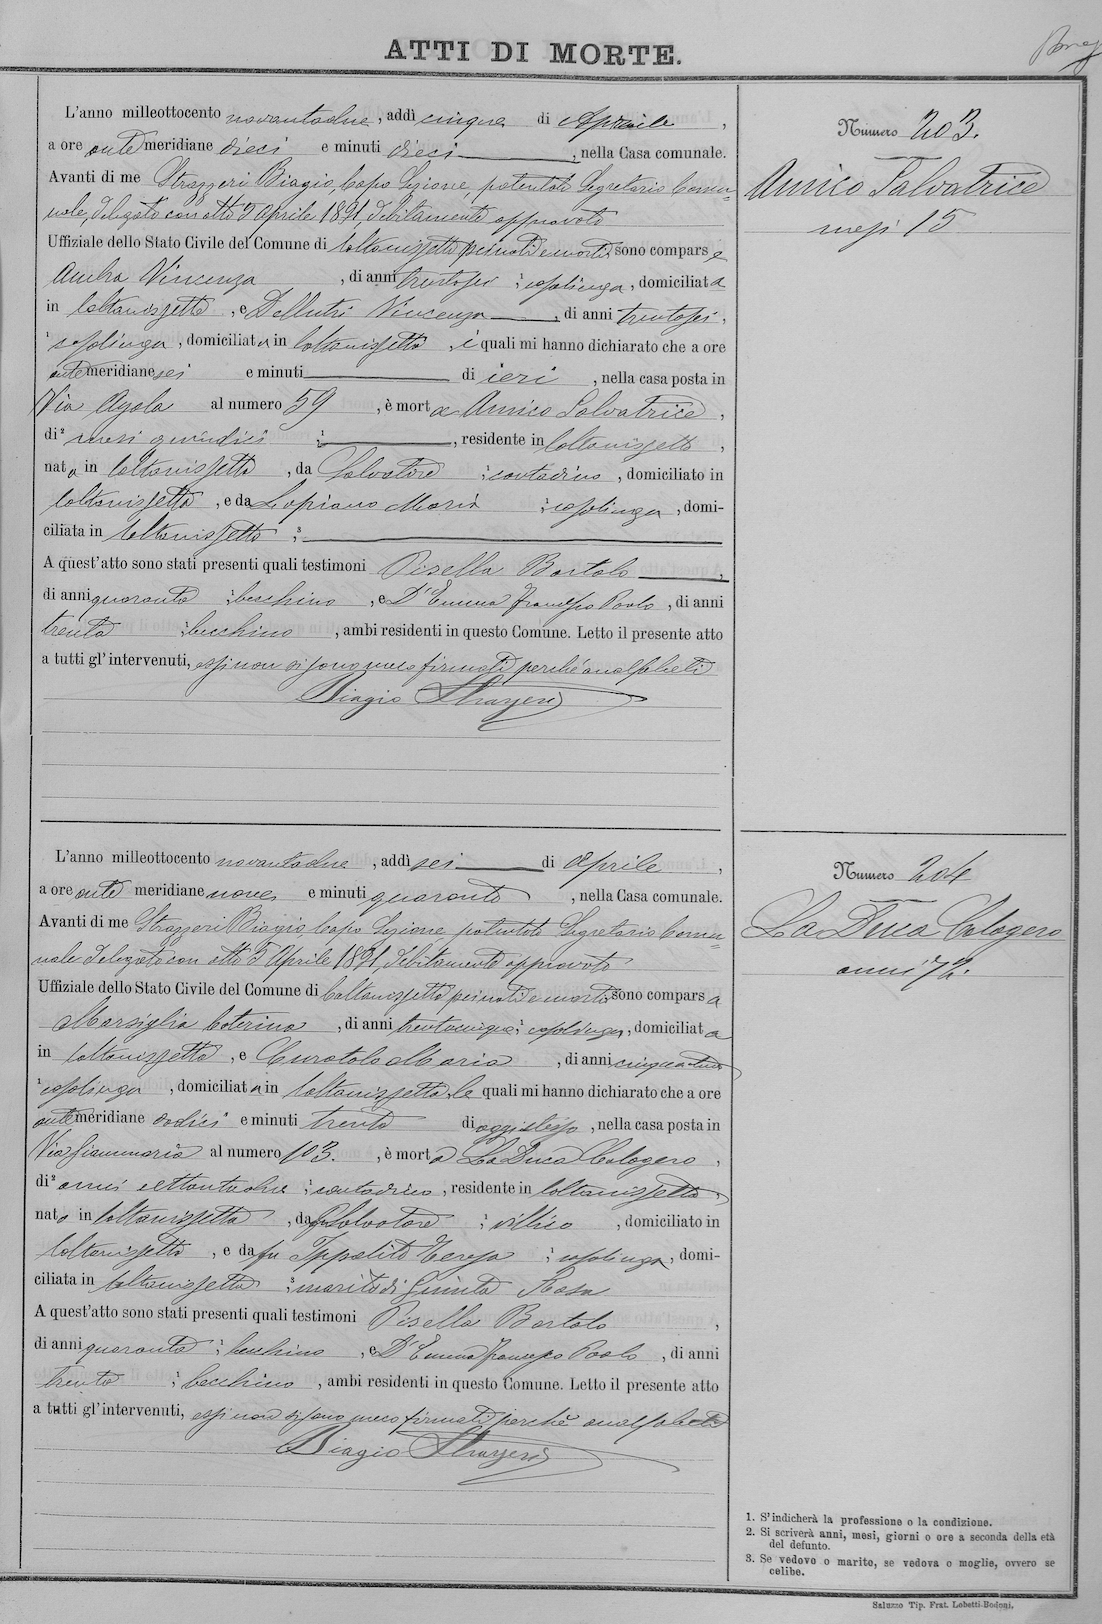 ATTI DI MORTE.
L'anno milleottocento novantadue, addì cinque di Aprile,
a ore ante meridiane dieci e minuti dieci, nella Casa comunale.
Avanti di me Strazzeri Biagio, Capo Sezione, patentato Segretario Comu-
nale, delegato con atto 5 Aprile 1891, debitamente approvato
Uffiziale dello Stato Civile del Comune di Caltanissetta pei nati e morti, sono comparse
Vincenza, di anni trentasei, casalinga, domiciliata
in Caltanissetta, e Dellutri Vincenza, di anni trentasei,
casalinga, domiciliata in Caltanissetta, i quali mi hanno dichiarato che a ore
ante meridiane sei e minuti di ieri, nella casa posta in
Via al numero 59, è morta Amico Salvatrice,
di² mesi quindici, residente in Caltanissetta,
nata in Caltanissetta, da Salvatore, contadino, domiciliato in
Caltanissetta, e da Lopiano Maria, casalinga, domi-
ciliata in Caltanissetta ³
A quest'atto sono stati presenti quali testimoni Pisella Bartolo,
di anni quaranta, becchino, e D'Emma Francesco Paolo, di anni
trenta, becchino, ambi residenti in questo Comune. Letto il presente atto
a tutti gl'intervenuti, essi non si sono meco firmati perché analfabeti
Biagio Strazzeri
Numero 203.
Amico Salvatrice
mesi 15
L'anno milleottocento novantadue, addì sei di Aprile,
a ore ante meridiane nove e minuti quaranta, nella Casa comunale.
Avanti di me Strazzeri Biagio, Capo Sezione, patentato Segretario Comu-
nale, delegato con atto 5 Aprile 1891, debitamente approvato
Uffiziale dello Stato Civile del Comune di Caltanissetta pei nati e morti sono comparsa
Marsiglia Caterina, di anni trentacinque, casalinga, domiciliata
in Caltanissetta, e Curatolo Maria, di anni
casalinga, domiciliata in Caltanissetta, le quali mi hanno dichiarato che a ore
ante meridiane dodici e minuti trenta di oggi stesso, nella casa posta in
Via Giammaria al numero 103., è morto La Duca Calogero,
di² anni settantadue, contadino, residente in Caltanissetta,
nato in Caltanissetta, da fu Salvatore, villico, domiciliato in
Caltanissetta, e da fu Ippolito Teresa, casalinga, domi-
ciliata in Caltanissetta ³ marito di Giunta Rosa
A quest'atto sono stati presenti quali testimoni Pisella Bartolo,
di anni quaranta, becchino, e D'Emma Francesco Paolo, di anni
trenta, becchino, ambi residenti in questo Comune. Letto il presente atto
a tutti gl'intervenuti, essi non si sono meco firmati perché analfabeti
Biagio Strazzeri
Numero 204
La Duca Calogero
anni 72.
1. S'indicherà la professione o la condizione.
2. Si scriverà anni, mesi, giorni o ore a seconda della età
del defunto.
3. Se vedovo o marito, se vedova o moglie, ovvero se
celibe.
Saluzzo Tip. Frat. Lobetti-Bodoni.